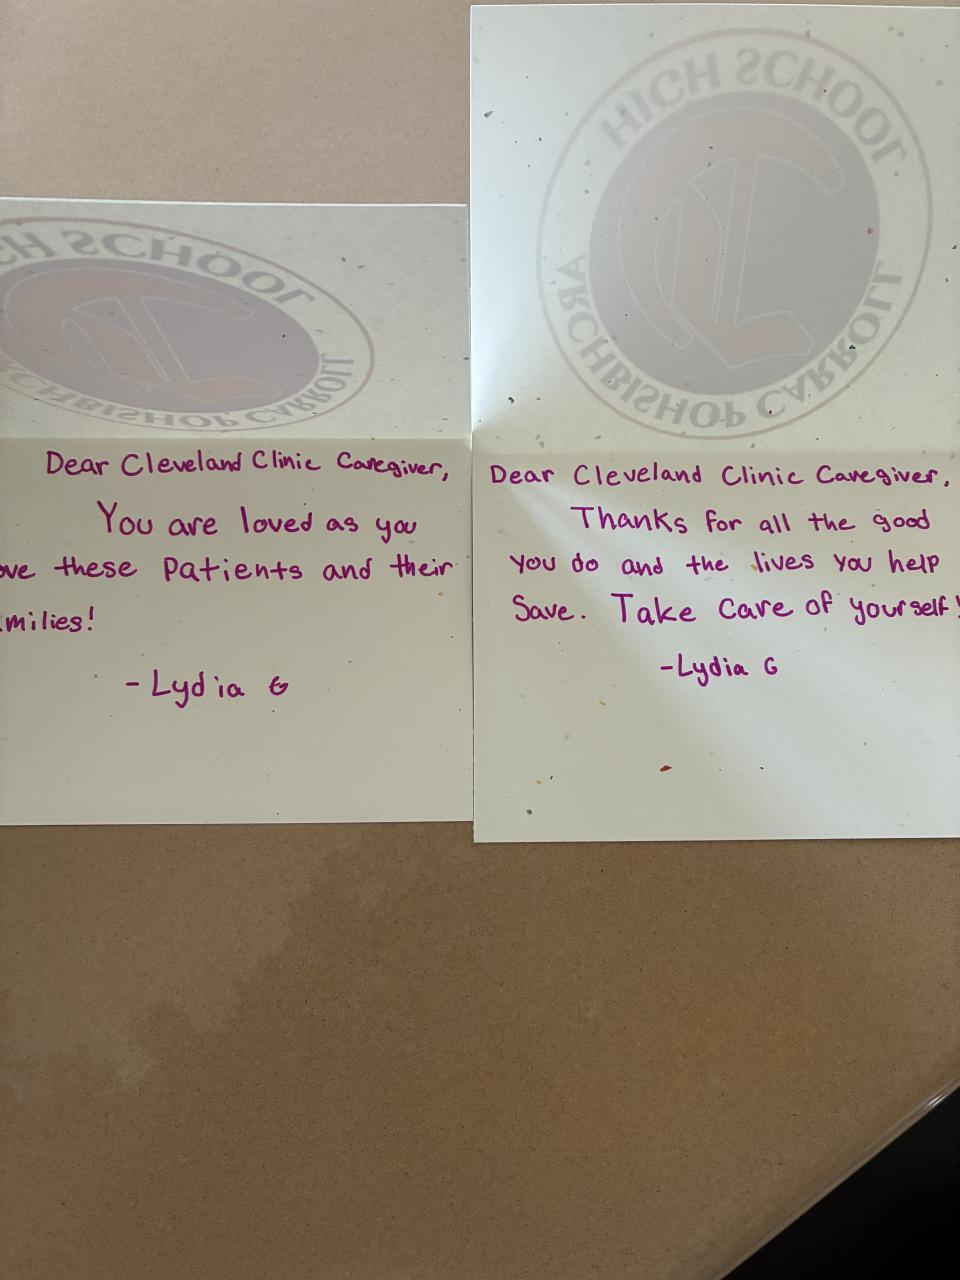 HIGH SCHOOL
ARCHBISHOP CARROLL
Dear Cleveland Clinic Caregiver,
You are loved as you
ove these Patients and their
milies!
- Lydia G
HIGH SCHOOL
ARCHBISHOP CARROLL
Dear Cleveland Clinic Caregiver,
Thanks for all the good
you do and the lives you help
Save. Take Care of yourself!
-Lydia G